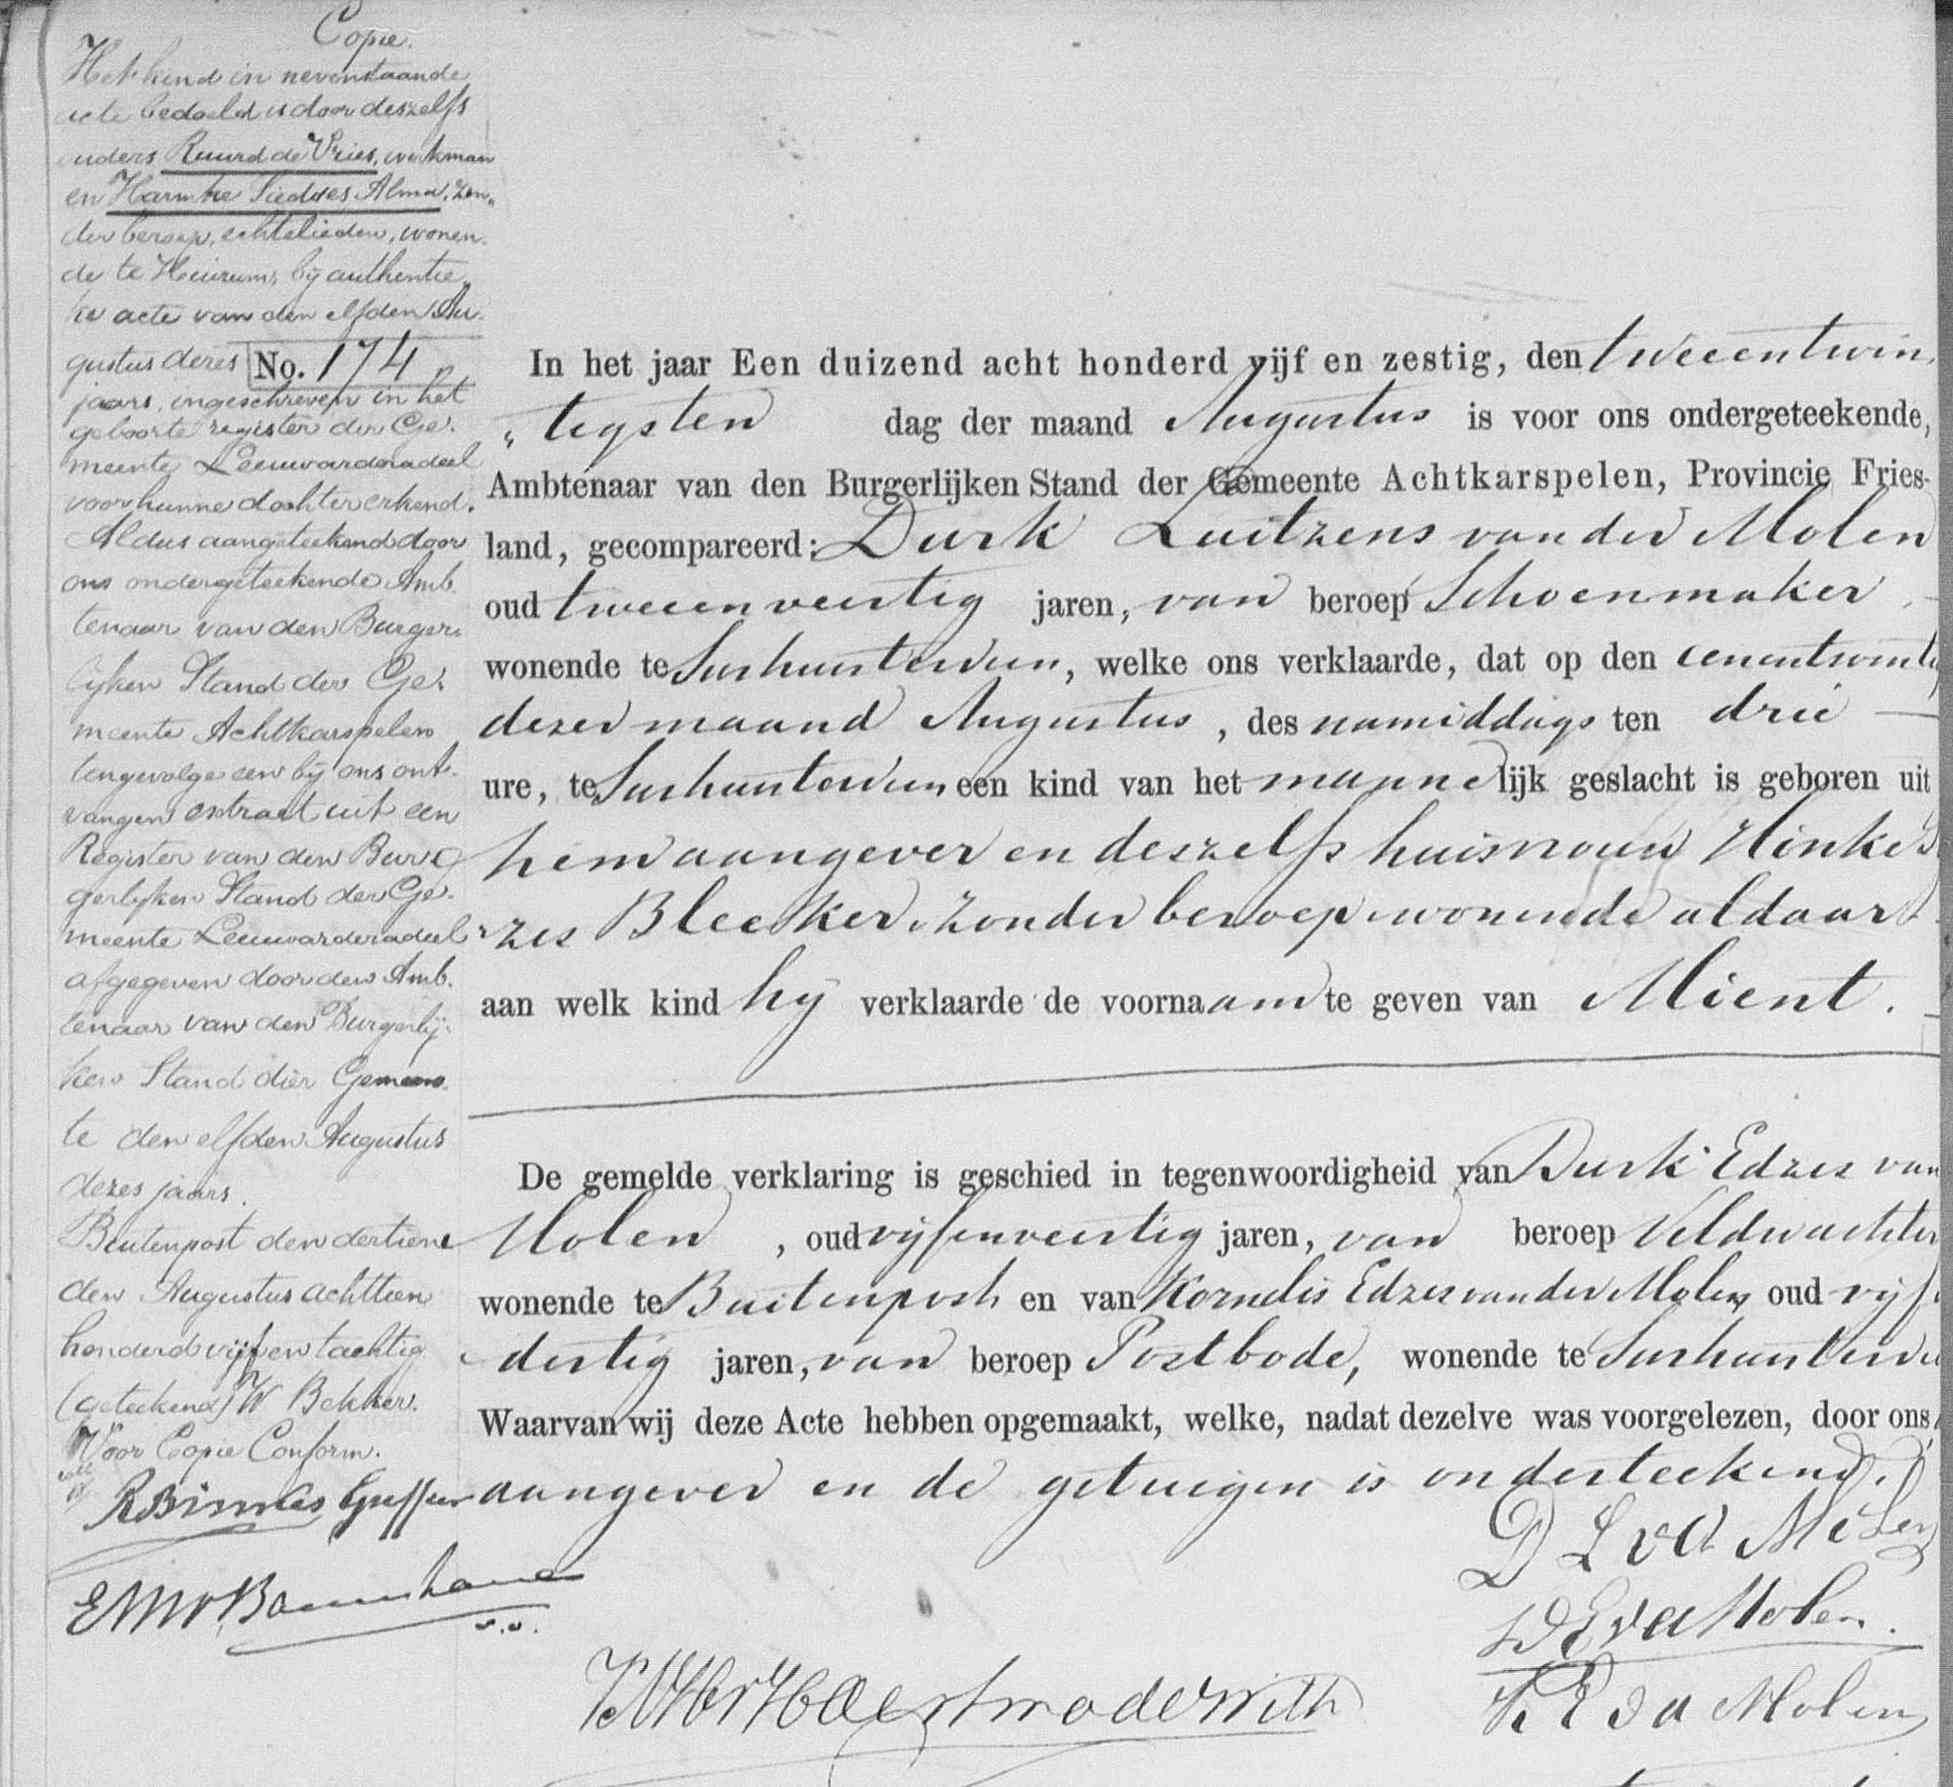 Copie.
Het kind in nevenstaande
acte bedoeld is door deszelfs
ouders Ruurd de Vries, werkman
en Harmke Siedses Alma, zon„
der beroep, echtelieden, wonen„
de te Huizum, bij authentie„
ke acte van den elfden Au„
gustus dezes
jaars, ingeschreven in het
geboorte register der Ge„
meente Leeuwarderadeel
voor hunne dochter erkend.
Aldus aangeteekend door
ons ondergeteekende Amb„
tenaar van den Burger„
lijken Stand der Ge„
meente Achtkarspelen
tengevolge een bij ons ont„
vangen extract uit een
Register van den Bur„
gerlijken Stand der Ge„
meente Leeuwarderadeel
afgegeven door den Amb„
tenaar van den Burgerlij„
ken Stand dier Gemeen„
te den elfden Augustus
dezes jaars.
Buitenpost den dertien
den Augustus achttien
honderd vijf en tachtig
(geteekend) W Bekker.
Voor Copie Conform.
Griffier
No. 174
In het jaar Een duizend acht honderd vijf en zestig, den tweeentwin„
„tigsten dag der maand Augustus is voor ons ondergeteekende,
Ambtenaar van den Burgerlijken Stand der Gemeente Achtkarspelen, Provincie Fries-
land, gecompareerd: Durk Luitzens van der Molen
oud tweeenveertig jaren, van beroep Schoenmaker
wonende te Surhuisterveen, welke ons verklaarde, dat op den eenentwintig
dezer maand Augustus, des namiddags ten drie
ure, te Surhuisterveen een kind van het mannelijk geslacht is geboren uit
hem aangever en deszelfs huisvrouw Hinke
zes Bleeker, zonder beroep wonende aldaar
aan welk kind hij verklaarde de voornaam te geven van Mient.
De gemelde verklaring is geschied in tegenwoordigheid van Durk Edzes van
Molen, oud vijfenveertig jaren, van beroep Veldwachter
wonende te Buitenpost en van Kornelis Edzes van der Molen oud vijf
dertig jaren, van beroep Postbode, wonende te Surhuisterve
Waarvan wij deze Acte hebben opgemaakt, welke, nadat dezelve was voorgelezen, door ons,
aangever en de getuigen is onderteekend.
D L v d Molen
D E v d Molen.
K E v d Molen